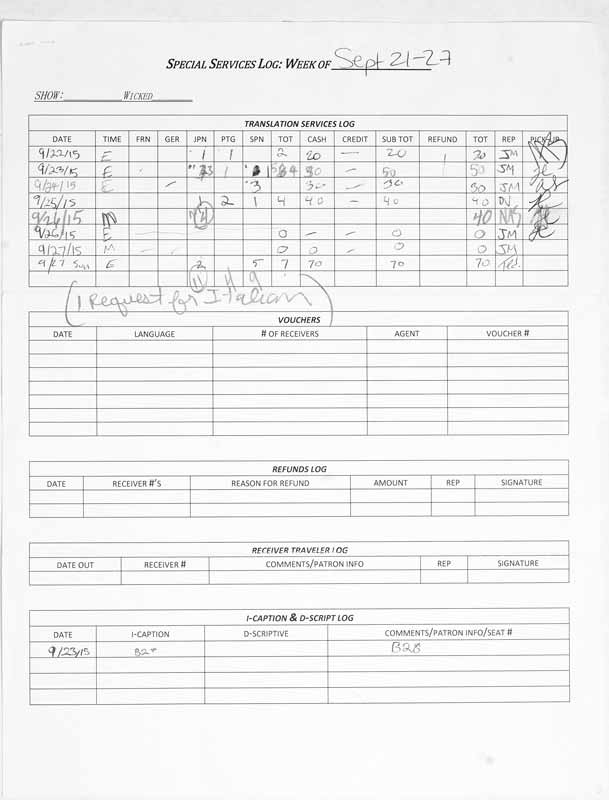 SPECIAL SERVICES LOG: WEEK OF Sept 21-27
SHOW: WICKED
TRANSLATION SERVICES LOG
DATE TIME FRN GER JPN PTG SPN TOT CASH CREDIT SUB TOT REFUND TOT REP PICK-UP
9/22/15 E 1 1 2 20 — 20 20 JM
9/23/15 E 1 50 50 JM
9/24/15 E — 3 30 — 30 30 JM
9/25/15 2 1 4 40 — 40 40 DJ
9/26/15 M 40 NAS
9/26/15 E 0 — — 0 0 JM
9/27/15 M — 0 0 — 0 0 JM
9/27 Sun E 2 5 7 70 70 70 Ted.
11 4 9
(1 Request for Italian)
VOUCHERS
DATE LANGUAGE # OF RECEIVERS AGENT VOUCHER #
REFUNDS LOG
DATE RECEIVER #'S REASON FOR REFUND AMOUNT REP SIGNATURE
RECEIVER TRAVELER LOG
DATE OUT RECEIVER # COMMENTS/PATRON INFO REP SIGNATURE
I-CAPTION & D-SCRIPT LOG
DATE I-CAPTION D-SCRIPTIVE COMMENTS/PATRON INFO/SEAT #
9/23/15 B28